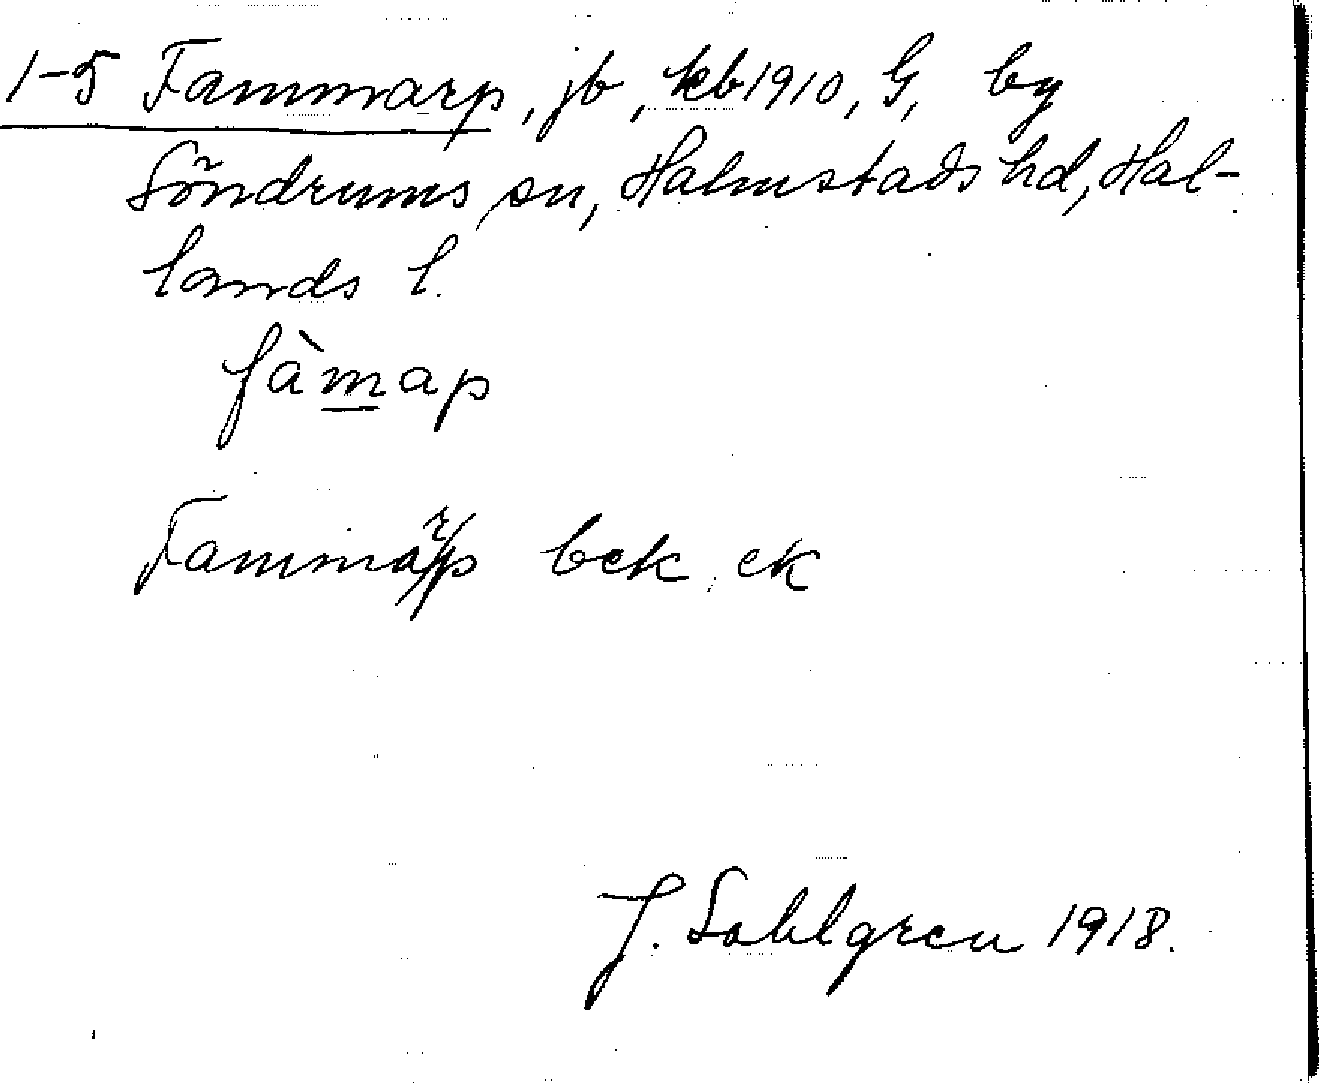 1-5 Fammarp, jb, kb 1910, G, by
Söndrums sn, Halmstads hd, Hal-
lands l.
fàmap
Fammarp bek, ek
J. Sahlgren 1918.